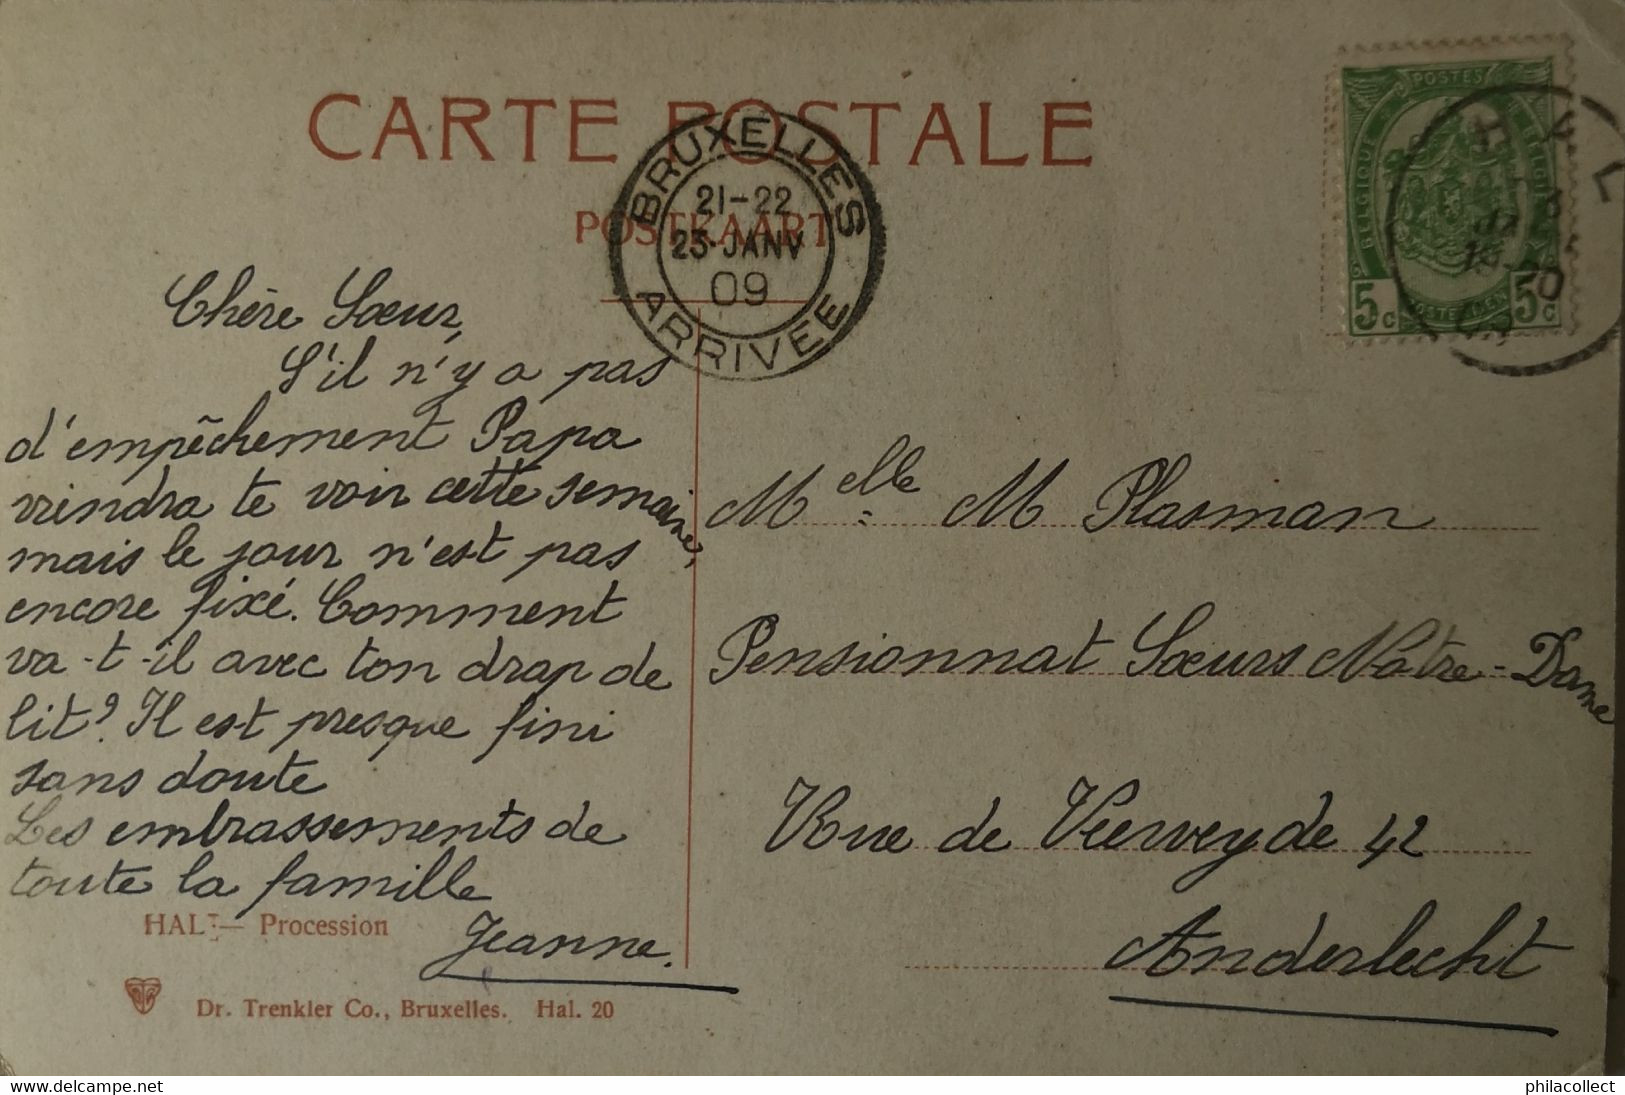 CARTE POSTALE
POSTKAART
BRUXELLES
21-22
23·JANV
09
ARRIVÉE
POSTES
BELGIQUE
BELGIË
5c 5c
H A L
Chère Sœur,
S'il n'y a pas
d'empêchement Papa
viendra te voir cette semaine,
mais le jour n'est pas
encore fixé. Comment
va-t-il avec ton drap de
lit? Il est presque fini
sans doute
Les embrassements de
toute la famille
Jeanne.
Melle M Plasman
Pensionnat Sœurs Notre-Dame
Rue de Veeweyde 42
Anderlecht
HAL — Procession
Dr. Trenkler Co., Bruxelles. Hal. 20
www.delcampe.net
philacollect